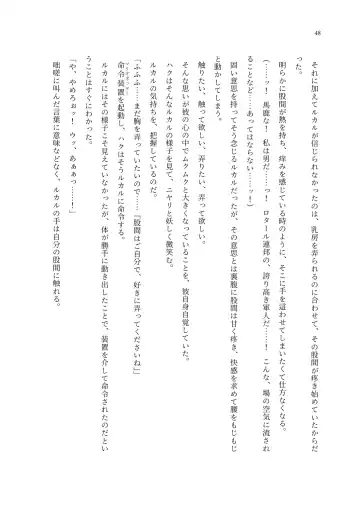 48
それに加えてルカルが信じられなかったのは、乳房を弄られるのに合わせて、その股間が疼き始めていたからだ
った。
明らかに股間が熱を持ち、痒みを感じている時のように、そこに手を這わせてしまいたくて仕方なくなる。
(……ッ！　馬鹿な！　私は男だ……ッ！　ロタール連邦の、誇り高き軍人だ……ッ！　こんな、場の空気に流され
ることなど……あってはならない……ッ！)
固い意思を持ってそう念じるルカルだったが、その意思とは裏腹に股間は甘く疼き、快感を求めて腰をもじもじ
と動かしてしまう。
触りたい、触って欲しい、弄りたい、弄って欲しい。
そんな思いが彼の心の中でムクムクと大きくなっていることを、彼自身自覚していた。
ハクはそんなルカルの様子を見て、ニヤリと妖しく微笑む。
ルカルの気持ちを、把握しているのだ。
「ふふふ……まだ胸を弄っていたいので……『股間はご自分で、好きに弄ってくださいね』」
命令装置を起動し、ハクはそうルカルに命令する。
ルカルにはその様子こそ見えていなかったが、体が勝手に動き出したことで、装置を介して命令されたのだとい
うことはすぐにわかった。
「や、やめろぉッ！　ウッ、あぁぁっ……！」
咄嗟に叫んだ言葉に意味などなく、ルカルの手は自分の股間に触れる。